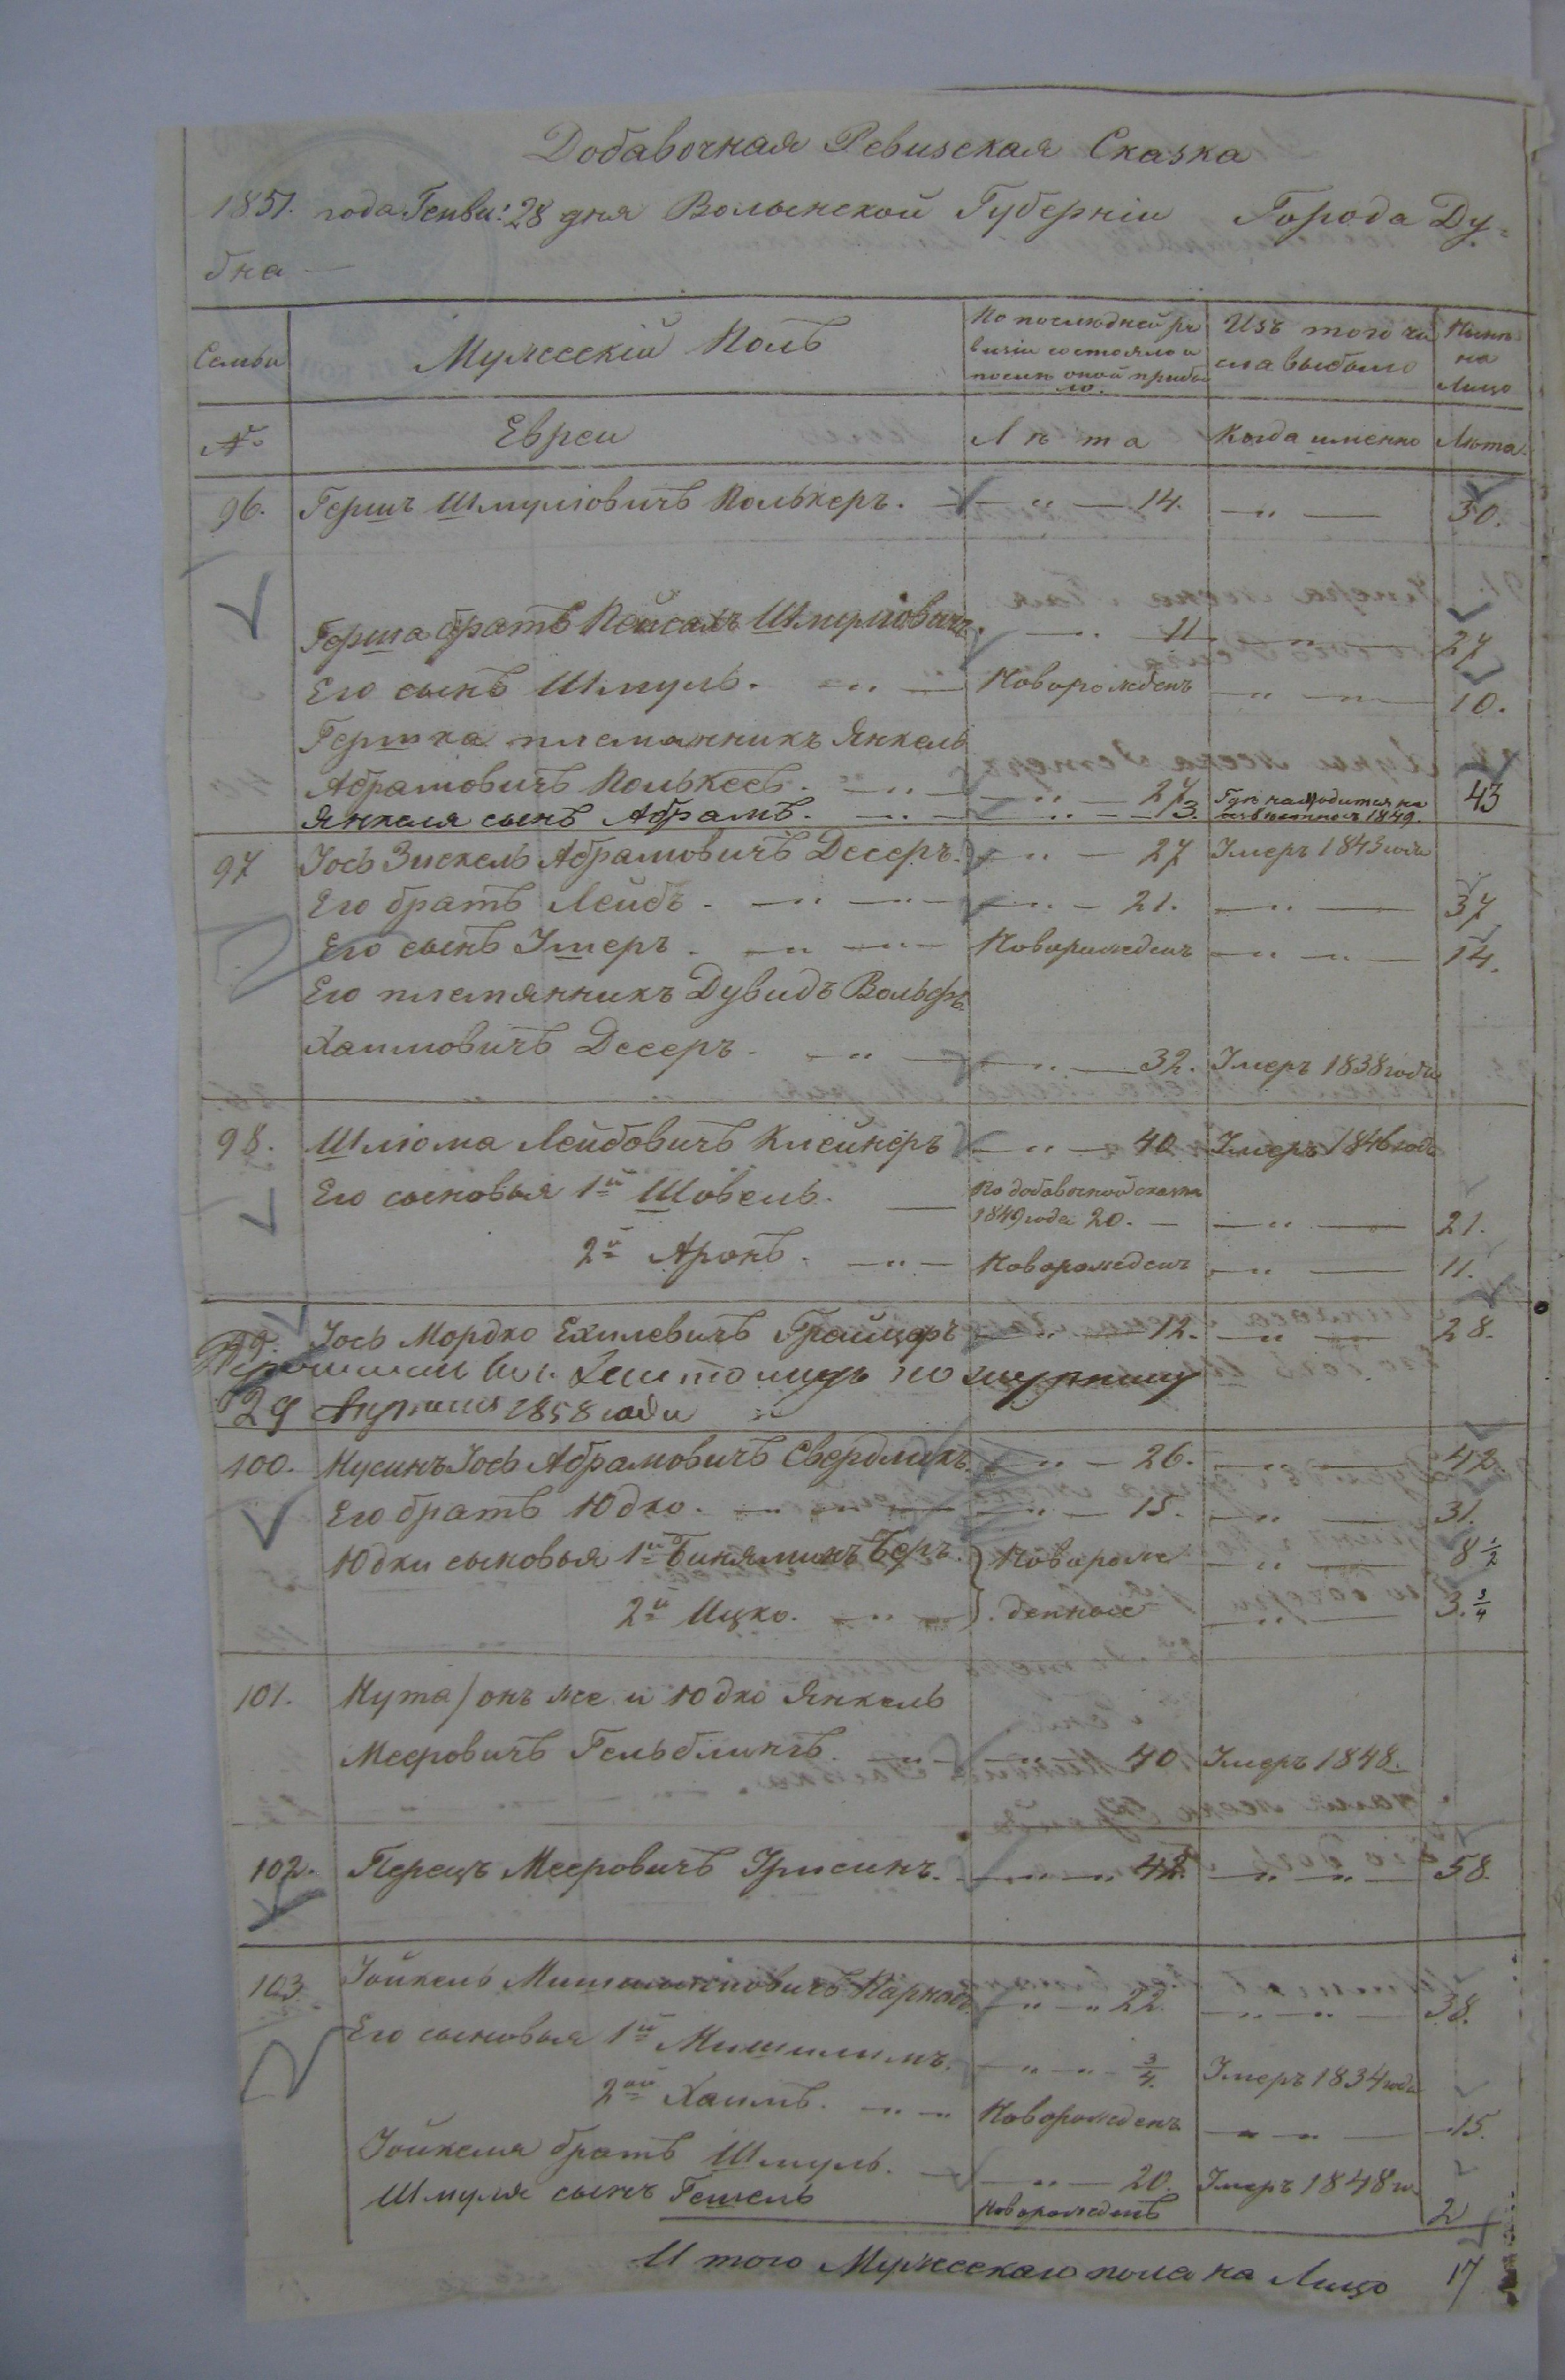 Добавочная Ревизская Сказка
1851. года Генва: 28 дня Волынской Губерніи Города Ду=
бна —
Семьи
Мужескій Полъ
По последней ре
визіи состояло и
после оной прибы
ло.
Изъ того чи
сла выбыло
Нынѣ
на
Лицо
№
Евреи
Лѣта
Когда именно
Лѣта
96. Гершъ Шмуліовичъ Полькеръ. — " — 14. — " — 30.
Герша братъ Пейсахъ Шмуліовичъ. — " 11 — " — 27
Его сынъ Шмуль. — " — Новорожденъ — " — " — 10.
Гершка племянникъ Янкель
Абрамовичъ Полькесъ. — " — — " — 27 43
Янкеля сынъ Абрамъ. — " — — " — 13. Где находится не
извѣстно съ 1849.
97 Іось Зискель Абрамовичъ Десеръ. — " — 27 Умеръ 1843 года
Его братъ Лейбъ. — " — " — — " — 21. — " — 37
Его сынъ Умеръ. — " — " — Новорожденъ — " — " — 14.
Его племянникъ Дувидъ Вольфъ
Хаимовичъ Десеръ. — " — — " — 32. Умеръ 1838 года
98. Шліома Лейбовичъ Клейнеръ — " — 40 Умеръ 1846 года
Его сыновья 1й Шовель. — По добавочной сказкѣ
1849 года 20. — — " — 21.
2й Аронъ. — " — Новорожденъ — " — 11.
99. Іось Мордко Ехилевичъ Грайцеръ — " — 12. — " — 28.
по
29 Августа 1858 года
100. Нусинъ Іось Абрамовичъ Свердликъ. — " — 26. — " — 42.
Его братъ Юдко. — " — " — — " — 15. — " — 31.
Юдки сыновья 1й Биняминъ Беръ. } Новорож — " — 8 1/2
2й Ицко. — " — }. денные — " — 3. 3/4
101. Нута / онъ же и Юдко Янкель
Мееровичъ Гельблингъ. — " — — " — 40 Умеръ 1848.
102. Перецъ Мееровичъ Грисинъ. — " — " 42. — " — " — 58.
103 Іойкель — " — " 22. — " — " — 38.
Его сыновья 1й Мишилимъ. — " — " 3/4. Умеръ 1834 года
2ой Хаимъ. — " — " Новорожденъ — " — " — 15.
Іойкеля братъ Шмуль. — — " — 20. Умеръ 1848 го.
Шмуля сынъ Гешель Новорожденъ 2
И того Мужескаго пола на Лицо 17